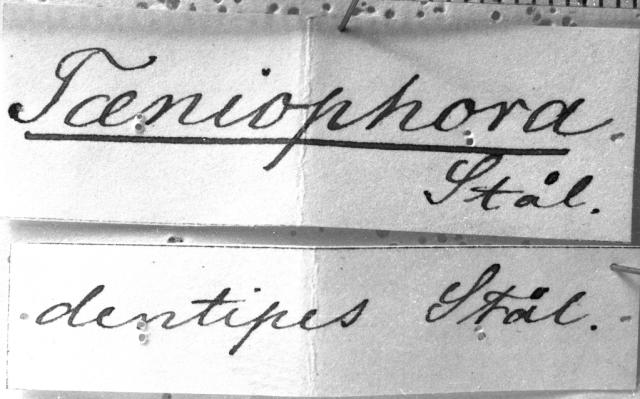 Tæniophora
Stål.
dentipes Stål.